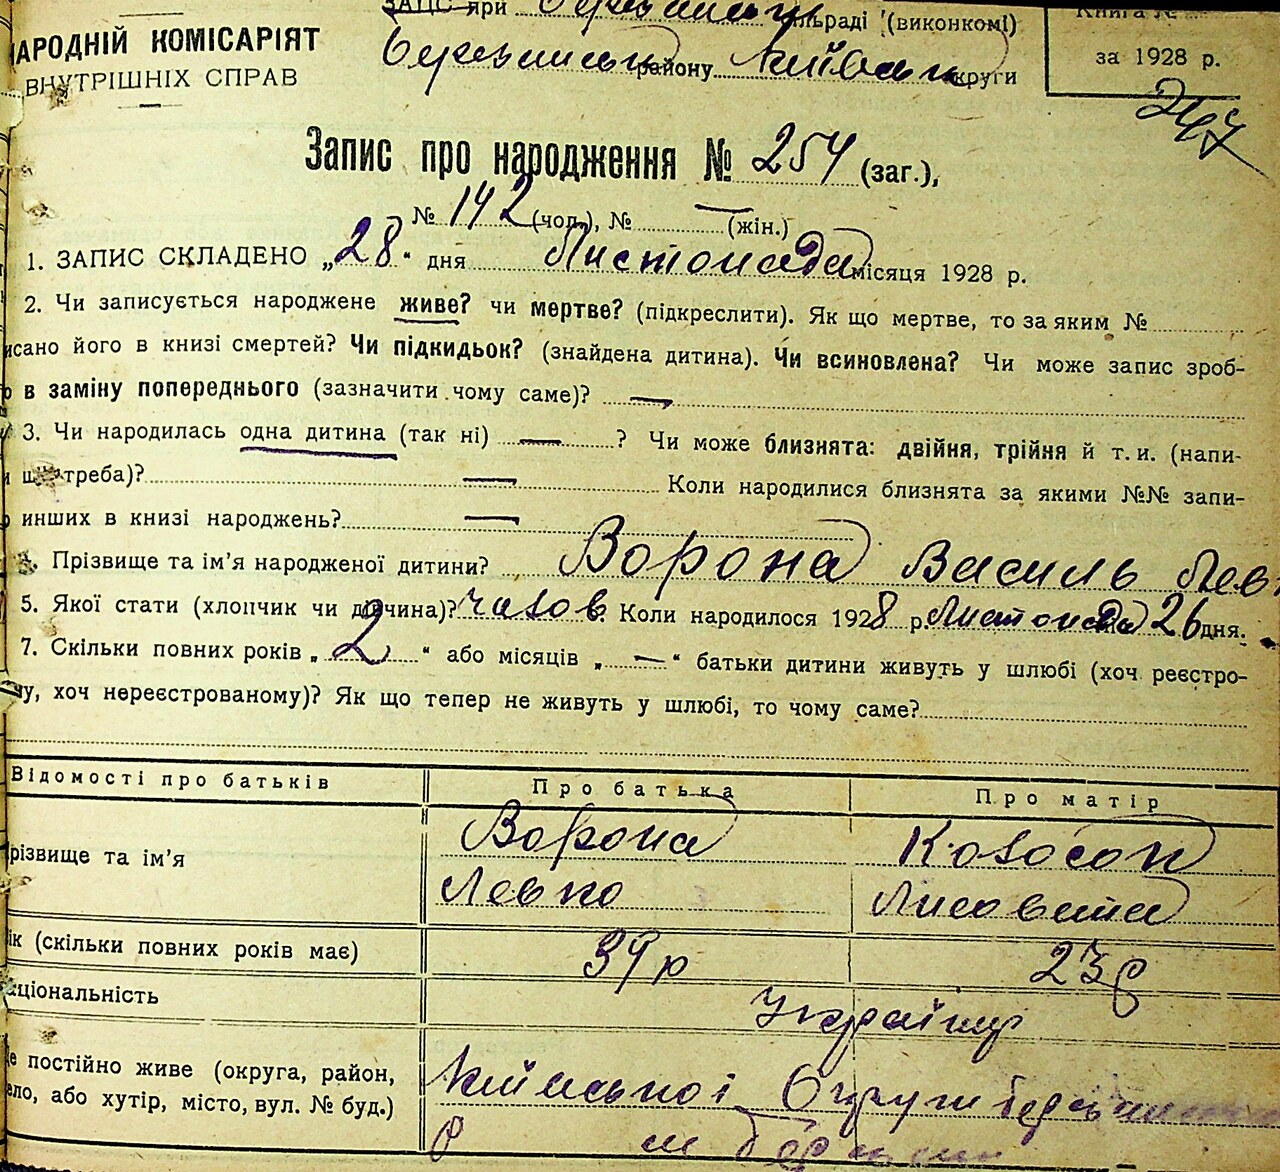 ЗАПС при сільраді (виконкомі)
НАРОДНІЙ КОМІСАРІЯТ
району округи
Книга №
за 1928 р.
ВНУТРІШНІХ СПРАВ
247
Запис про народження № 254 (заг.),
№ 142 (чол.), № — (жін.)
1. ЗАПИС СКЛАДЕНО „28“ дня Листопада місяця 1928 р.
2. Чи записується народжене живе? чи мертве? (підкреслити). Як що мертве, то за яким №
исано його в книзі смертей? Чи підкидьок? (знайдена дитина). Чи всиновлена? Чи може запис зроб-
о в заміну попереднього (зазначити чому саме)? —
3. Чи народилась одна дитина (так ні) — ? Чи може близнята: двійня, трійня й т. и. (напи-
треба)? — Коли народилися близнята за якими №№ запи-
инших в книзі народжень? —
4. Прізвище та ім’я народженої дитини? Ворона Василь Лев
5. Якої стати (хлопчик чи дівчина)? чолов. Коли народилося 1928 р. Листопада 26 дня.
7. Скільки повних років „2“ або місяців „—“ батьки дитини живуть у шлюбі (хоч реєстро-
му, хоч нереєстрованому)? Як що тепер не живуть у шлюбі, то чому саме?
Відомості про батьків Про батька Про матір
різвище та ім’я Ворона
Левко Лисовета
ік (скільки повних років має) 39 р 23 р
аціональність Україці
е постійно живе (округа, район, Київської Округи
ело, або хутір, місто, вул. № буд.)